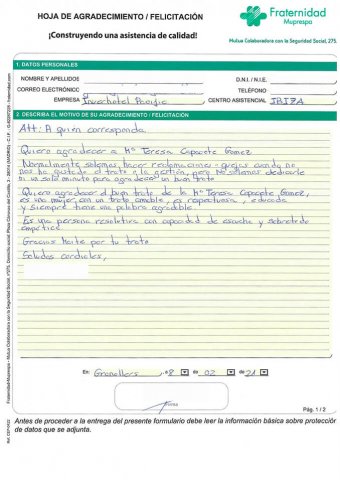 HOJA DE AGRADECIMIENTO / FELICITACIÓN
¡Construyendo una asistencia de calidad!
Fraternidad
Muprespa
Mutua Colaboradora con la Seguridad Social, 275
1. DATOS PERSONALES
NOMBRE Y APELLIDOS
D.N.I. / N.I.E.
CORREO ELECTRÓNICO
TELÉFONO
EMPRESA Inverhotel Pacific
CENTRO ASISTENCIAL IBIZA
2. DESCRIBA EL MOTIVO DE SU AGRADECIMIENTO / FELICITACIÓN
Att: A quien corresponda.
Quiero agradecer a Mª Teresa Capacete Gómez
Normalmente solemos hacer reclamaciones - quejas cuando no
nos ha gustado el trato o la gestión, pero No solemos dedicarle
ni un minuto para agradecer un buen trato
Quiero agradecer el buen trato de la Mª Teresa Capacete Gómez,
es una mujer con un trato amable, es respetuosa, educada
y siempre tiene una palabra agradable.
Es una persona resolutiva con capacidad de escucha y sobretodo
empática.
Gracias Maite por tu trato
Saludos cordiales,
En: Granollers, a 8 de 02 de 21
Firma
Pág. 1 / 2
Antes de proceder a la entrega del presente formulario debe leer la información básica sobre protección
de datos que se adjunta.